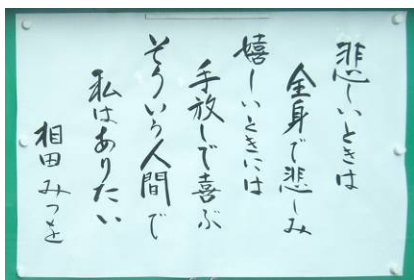 悲しいときは
全身で悲しみ
嬉しいときには
手放しで喜ぶ
そういう人間で
私はありたい
相田みつを